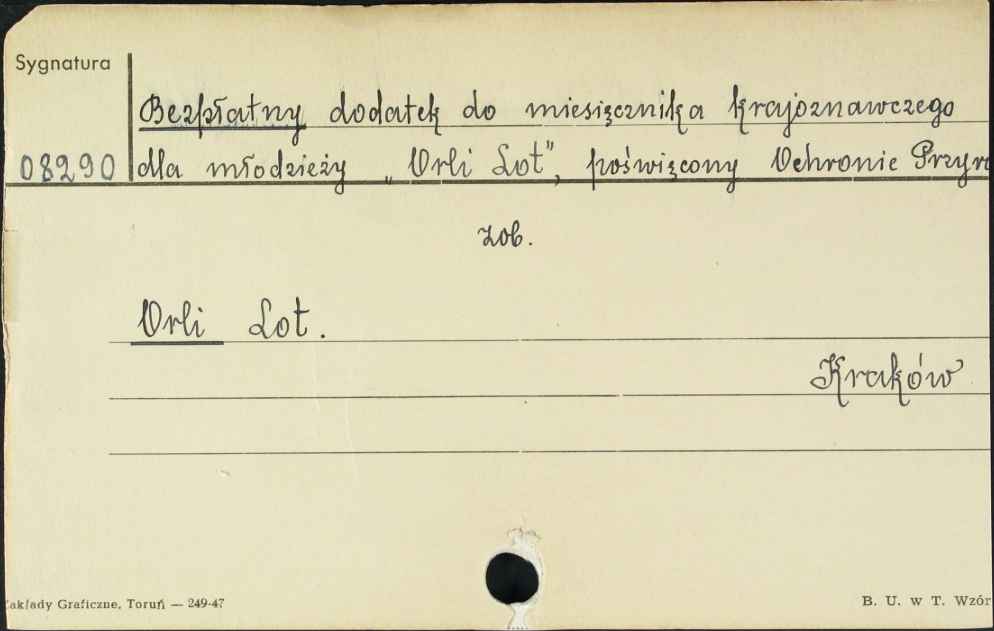 Sygnatura
Bezpłatny dodatek do miesięcznika krajoznawczego
08290 dla młodzieży „Orli Lot”, poświęcony Ochronie Przyro
zob.
Orli Lot.
Kraków
Zakłady Graficzne, Toruń — 249-47
B. U. w T. Wzór